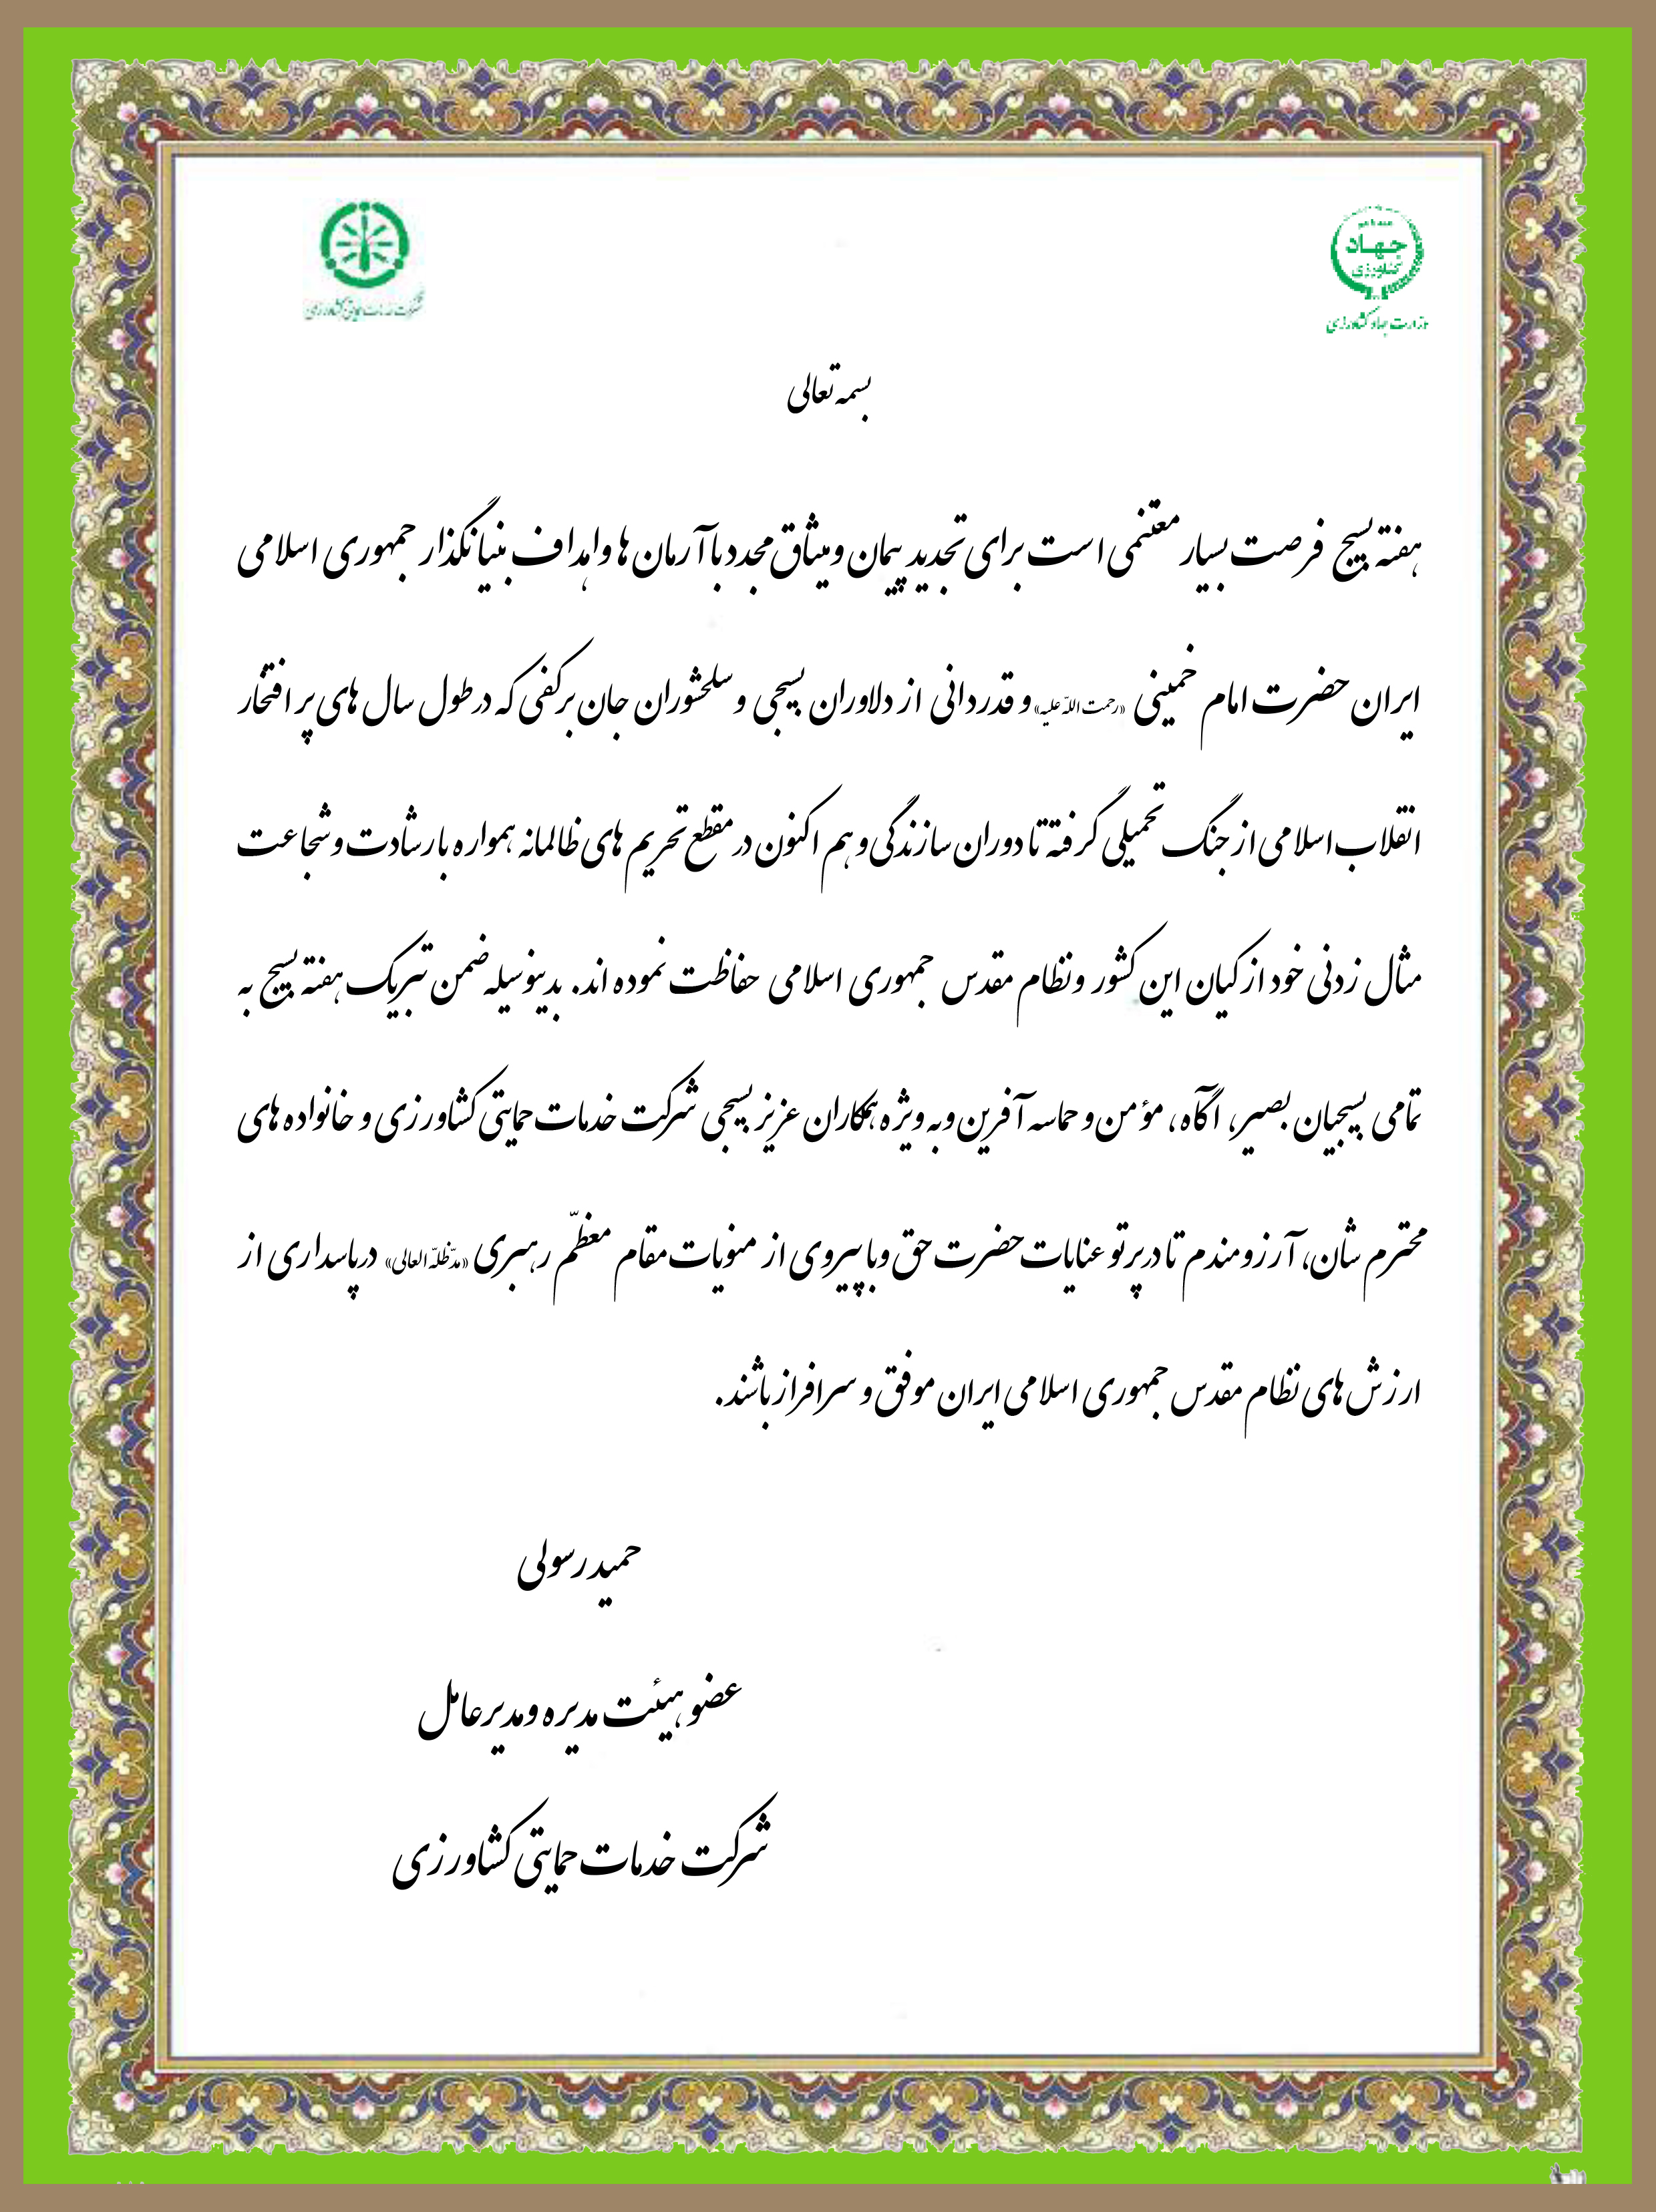 جهاد
کشاورزی
وزارت جهاد کشاورزی
شرکت خدمات حمایتی کشاورزی
بسمه تعالی
هفته بسیج فرصت بسیار مغتنمی است برای تجدید پیمان و میثاق مجدد با آرمان ها و اهداف بنیانگذار جمهوری اسلامی
ایران حضرت امام خمینی «رحمت اللّه علیه» و قدردانی از دلاوران بسیجی و سلحشوران جان برکفی که در طول سال های پر افتخار
انقلاب اسلامی از جنگ تحمیلی گرفته تا دوران سازندگی و هم اکنون در مقطع تحریم های ظالمانه همواره با رشادت و شجاعت
مثال زدنی خود از کیان این کشور و نظام مقدس جمهوری اسلامی حفاظت نموده اند. بدینوسیله ضمن تبریک هفته بسیج به
تمامی بسیجیان بصیر، آگاه، مؤمن و حماسه آفرین و به ویژه همکاران عزیز بسیجی شرکت خدمات حمایتی کشاورزی و خانواده های
محترم شان، آرزومندم تا در پرتو عنایات حضرت حق و با پیروی از منویات مقام معظّم رهبری «مدّظلّه العالی» در پاسداری از
ارزش های نظام مقدس جمهوری اسلامی ایران موفق و سرافراز باشند.
حمید رسولی
عضو هیئت مدیره و مدیرعامل
شرکت خدمات حمایتی کشاورزی